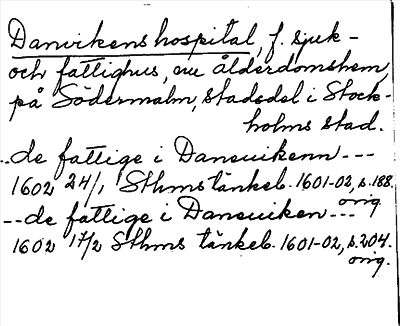 Danvikens hospital, f. sjuk-
och fattighus, nu ålderdomshem,
på Södermalm, stadsdel i Stock-
holms stad.
--de fattige i Dansuikenn ---
1602 24/1 Sthms tänkeb. 1601-02, s. 188.
orig.
--de fattige i Dansuiken ---
1602 17/2 Sthms tänkeb. 1601-02, s. 204.
orig.